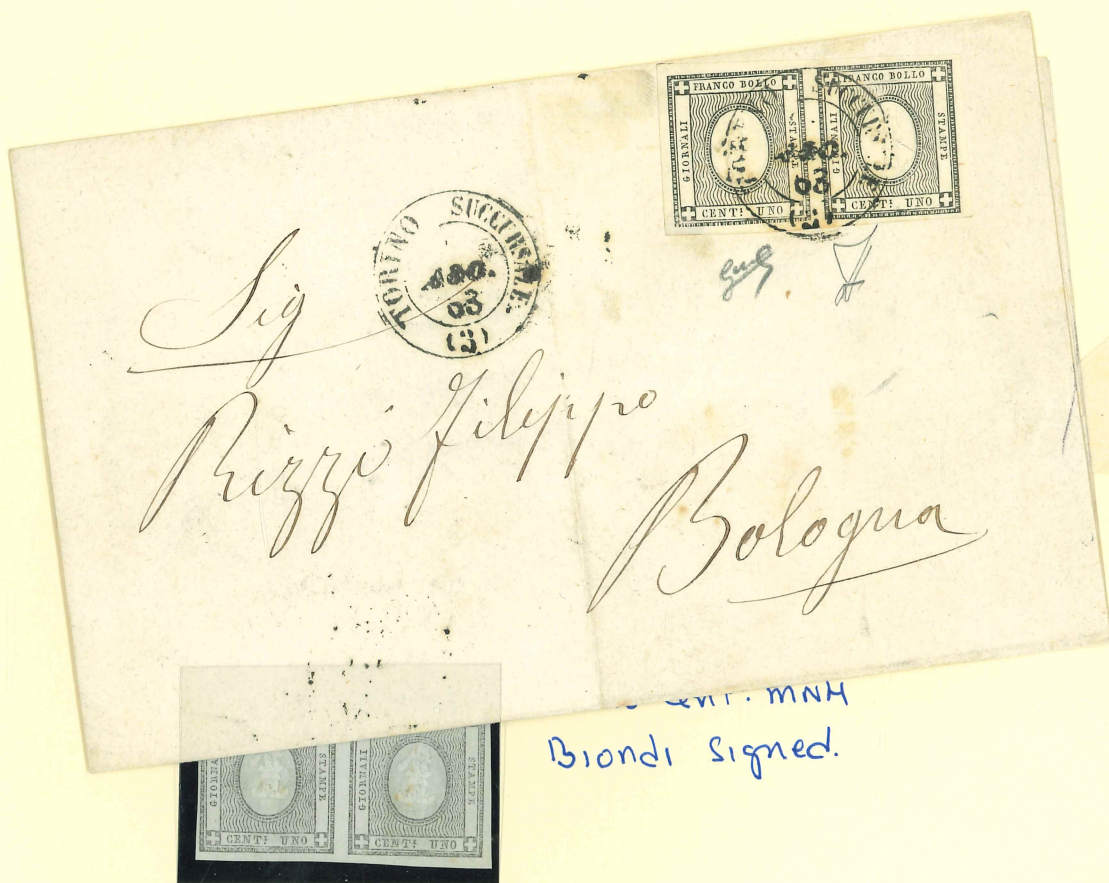 FRANCO BOLLO
GIORNALI
STAMPE
CENT: UNO
FRANCO BOLLO
GIORNALI
STAMPE
CENT: UNO
SUCCURSALE
63
TORINO SUCCURSALE
AGO.
63
(3)
Sig
Rizzi Filippo
Bologna
MNH
Biondi Signed.
STAMPE
GIORNALI
CENT: UNO
GIORNALI
STAMPE
CENT: UNO